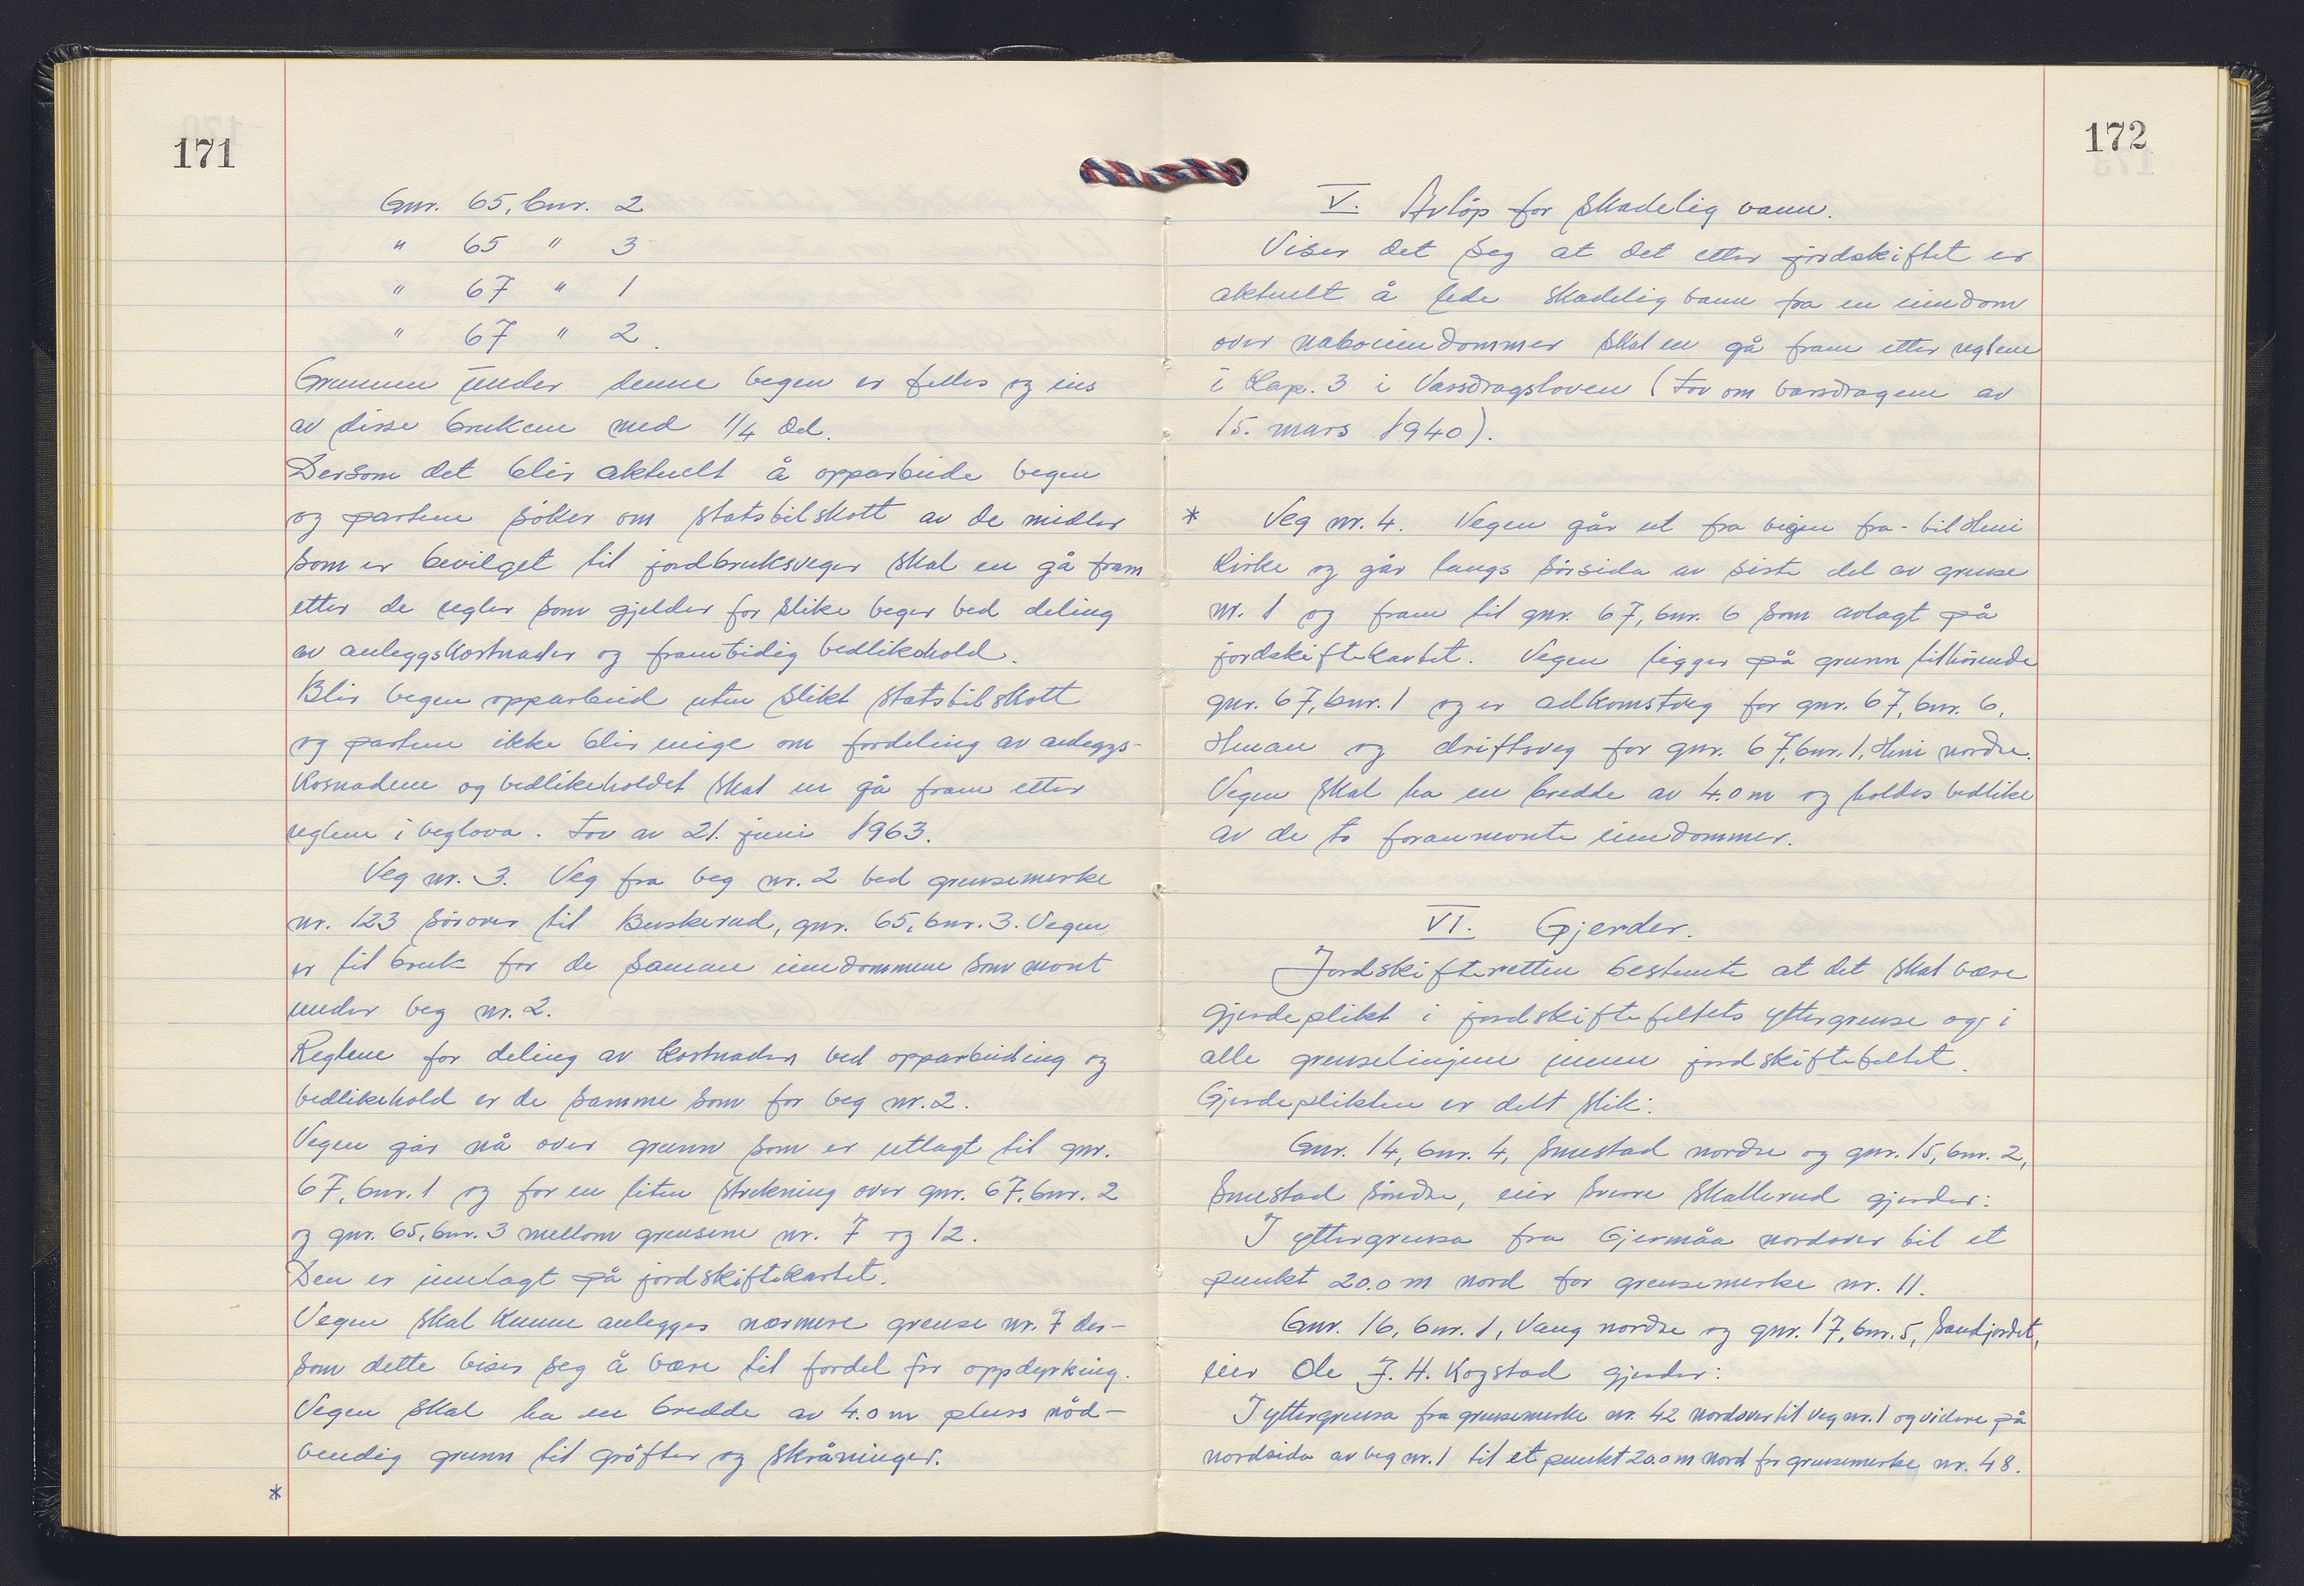 171
Gnr. 65, bnr. 2
" 65 " 3
" 67 " 1
" 67 " 2.
Grunnen under denne vegen er felles og eies
av disse brukene med 1/4 del.
Dersom det blir aktuelt å opparbeide vegen
og partene söker om statstilskott av de midler
som er bevilget til jordbruksveger skal en gå fram
etter de regler som gjelder for slike veger ved deling
av anleggskostnader og framtidig vedlikehold.
Blir vegen opparbeid uten slikt statstilskott
og partene ikke blir enige om fordeling av anleggs-
kosnadene og vedlikeholdet skal en gå fram etter
reglene i veglova. Lov av 21. juni 1963.
Veg nr. 3. Veg fra veg nr. 2 ved grensemerke
nr. 123 sörover til Buskerud, gnr. 65, bnr. 3. Vegen
er til bruk for de samme eiendommene som nevnt
under veg nr. 2.
Reglene for deling av kostnaden ved opparbeiding og
vedlikehold er de samme som for veg nr. 2.
Vegen går nå over grunn som er utlagt til gnr.
67, bnr. 1 og for en liten strekning over gnr. 67, bnr. 2
og gnr. 65, bnr. 3 mellom grensene nr. 7 og 12.
Den er innlagt på jordskiftekartet.
Vegen skal kunne anlegges nærmere grense nr. 7 der-
som dette viser seg å være til fordel for oppdyrking.
Vegen skal ha en bredde av 4.0 m pluss nöd-
vendig grunn til gröfter og skråninger.
*
172
V. Avlöp for skadelig vann.
Viser det seg at det etter jordskiftet er
aktuelt å lede skadelig vann fra en eiendom
over naboeiendommer skal en gå fram etter reglene
i Kap. 3 i Vassdragsloven (Lov om vassdragene av
15. mars 1940).
* Veg nr. 4. Vegen går ut fra vegen fra - til Heni
Kirke og går langs sörsida av siste del av grense
nr. 1 og fram til gnr. 67, bnr. 6 som avlagt på
jordskiftekartet. Vegen ligger på grunn tilhörende
gnr. 67, bnr. 1 og er adkomstveg for gnr. 67, bnr. 6,
og driftsveg for gnr. 67, bnr. 1, Heni nordre.
Vegen skal ha en bredde av 4.0 m og holdes vedlike
av de to forannevnte eiendommer.
VI. Gjerder.
Jordskifteretten bestemte at det skal være
gjerdeplikt i jordskiftefeltets yttergrense og i
alle grenselinjene innen jordskiftefeltet.
Gjerdeplikten er delt slik:
Gnr. 14, bnr. 4, Smestad nordre og gnr. 15, bnr. 2,
Smestad söndre, eier Sverre Skallerud gjerder:
I yttergrensa fra Gjermåa nordover til et
punkt 20.0 m nord for grensemerke nr. 11.
Gnr. 16, bnr. 1, Vang nordre og gnr. 17, bnr. 5, Sandjordet,
eier Ole J. H. Kogstad gjerder:
I yttergrensa fra grensemerke nr. 42 nordover til veg nr. 1 og videre på
nordsida av veg nr. 1 til et punkt 20.0 m nord for grensemerke nr. 48.